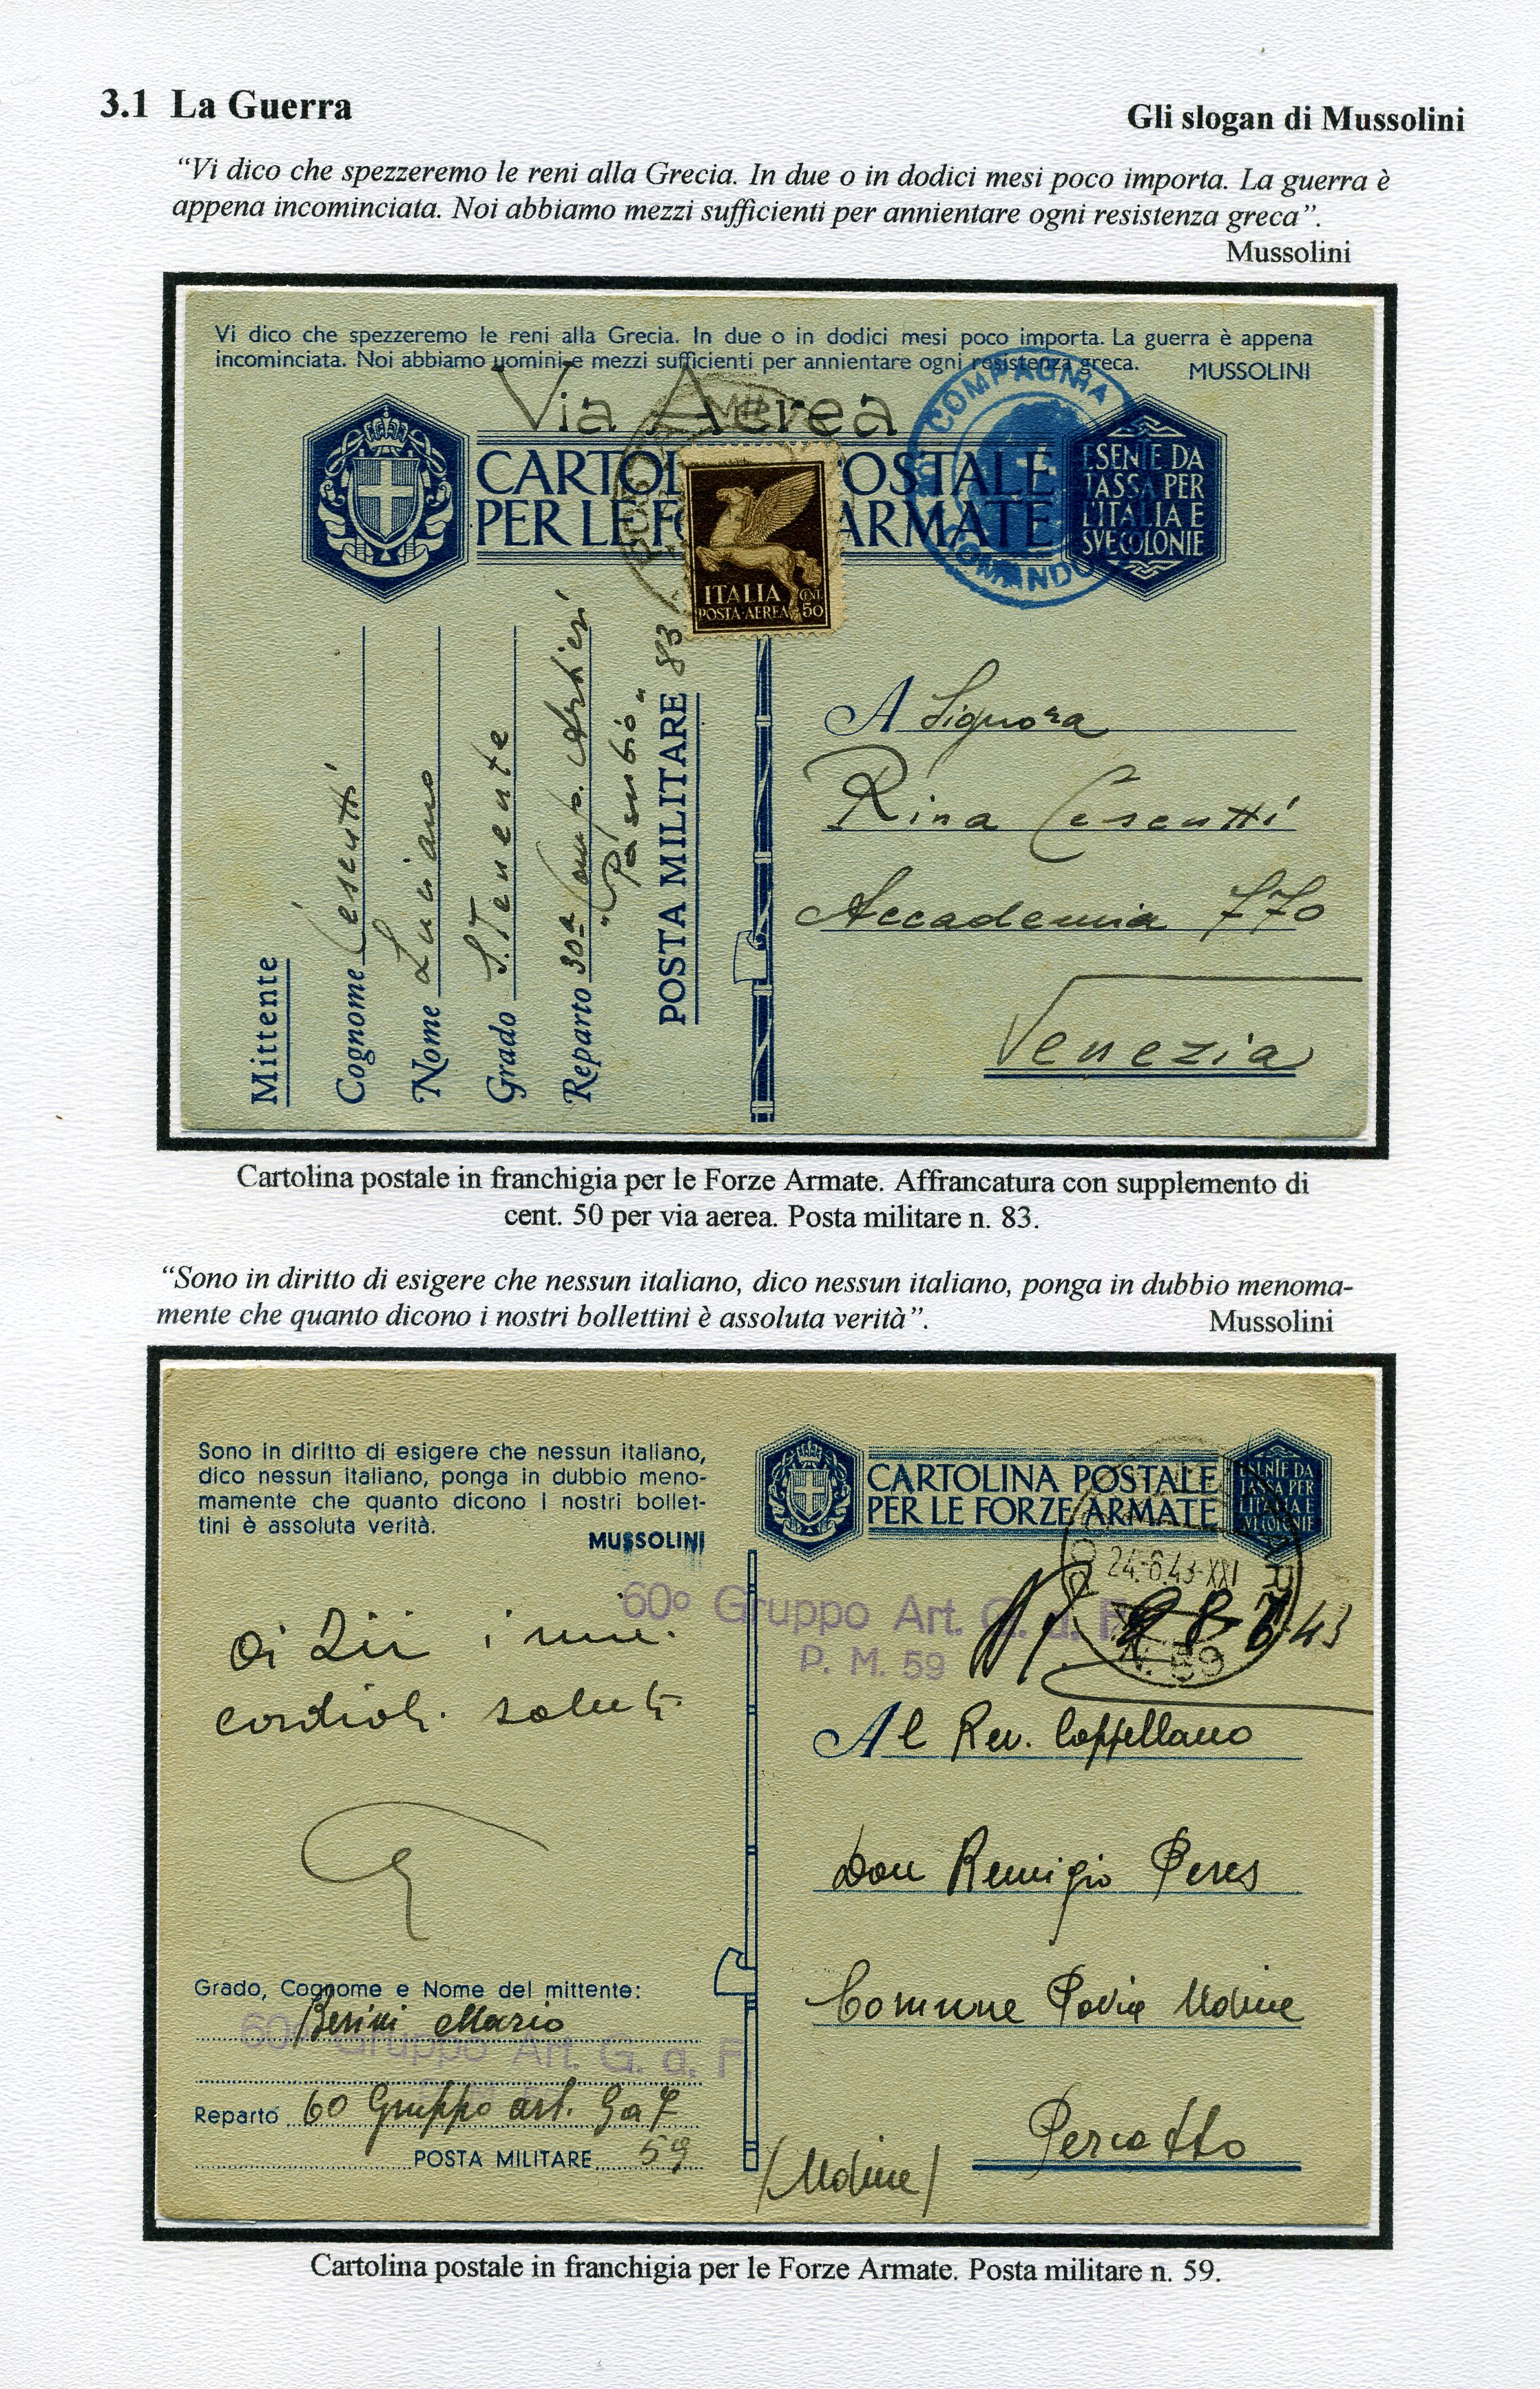 3.1 La Guerra
Gli slogan di Mussolini
“Vi dico che spezzeremo le reni alla Grecia. In due o in dodici mesi poco importa. La guerra è
appena incominciata. Noi abbiamo mezzi sufficienti per annientare ogni resistenza greca”.
Mussolini
Vi dico che spezzeremo le reni alla Grecia. In due o in dodici mesi poco importa. La guerra è appena
incominciata. Noi abbiamo uomini e mezzi sufficienti per annientare ogni resistenza greca.
MUSSOLINI
Via Aerea
COMPAGNIA
COMANDO
CARTOL OSTALE
PER LE FO ARMATE
ESENTE DA
TASSA PER
L'ITALIA E
SVE COLONIE
ITALIA
POSTA·AEREA
CENT.
50
Mittente
Cognome Cesentti
Nome Luciano
Grado S. Tenente
Reparto 30ª Comp. Artieri
"Pasubio"
POSTA MILITARE 83
A Signora
Rina Cesentti
Accademia 770
Venezia
Cartolina postale in franchigia per le Forze Armate. Affrancatura con supplemento di
cent. 50 per via aerea. Posta militare n. 83.
“Sono in diritto di esigere che nessun italiano, dico nessun italiano, ponga in dubbio menoma-
mente che quanto dicono i nostri bollettini è assoluta verità”.
Mussolini
Sono in diritto di esigere che nessun italiano,
dico nessun italiano, ponga in dubbio meno-
mamente che quanto dicono i nostri bollet-
tini è assoluta verità.
MUSSOLINI
CARTOLINA POSTALE
PER LE FORZE ARMATE
ESENTE DA
TASSA PER
L'ITALIA E
SVE COLONIE
24.6.43-XXI
N. 59
60º Gruppo Art. G. a. F.
P. M. 59
cordiali saluti
Al Rev. Cappellano
Don Remigio Peres
Comune Pavia Udine
Percotto
(Udine)
Grado, Cognome e Nome del mittente:
Berini Mario
60º Gruppo Art. G. a. F.
Reparto 60 Gruppo art. G a F
POSTA MILITARE 59
Cartolina postale in franchigia per le Forze Armate. Posta militare n. 59.